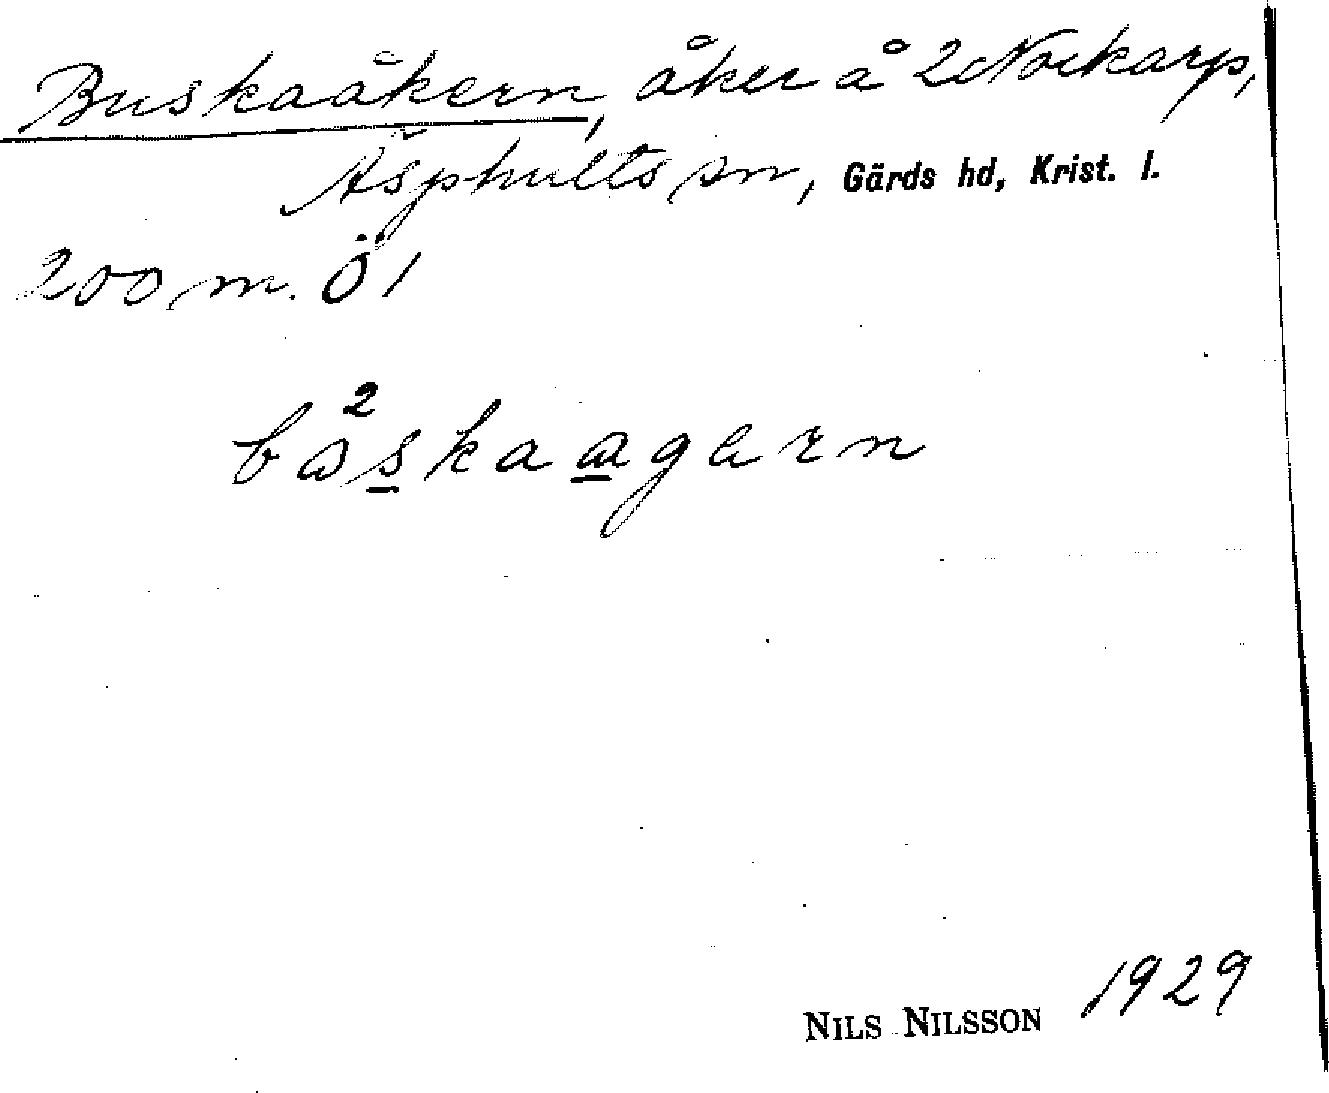 Buskaåkern, åker å 2 Norkarp,
Äsphults sn, Gärds hd, Krist. l.
200 m. Ö 1
NILS NILSSON 1929